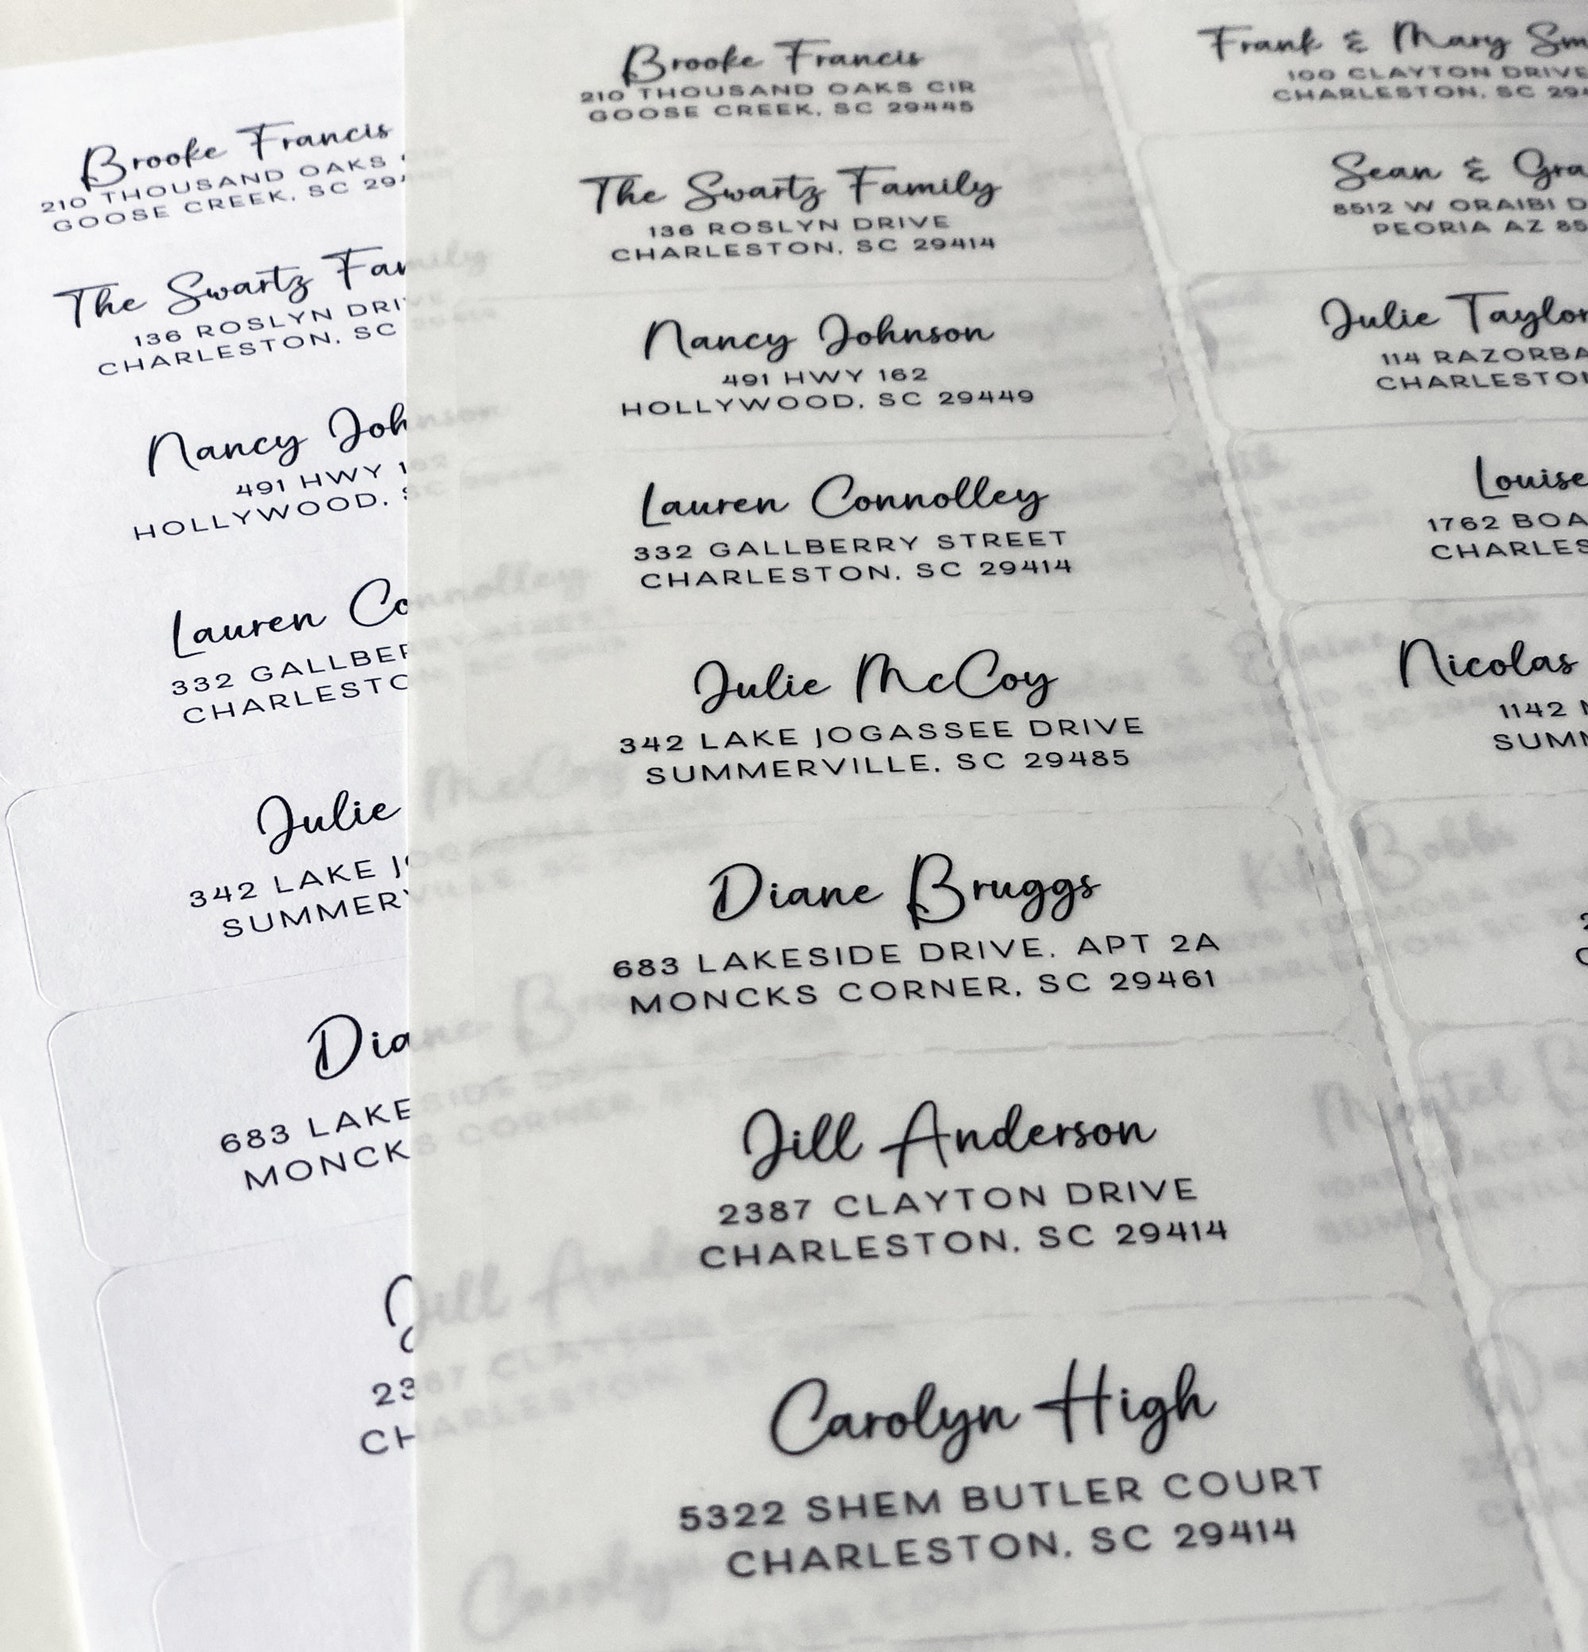 Brooke Francis
210 THOUSAND OAKS
GOOSE CREEK, SC
The Swartz
136 ROSLYN
CHARLESTON, SC
Nancy
491 HWY
HOLLYWOOD,
Lauren
332
Julie
342 LAKE
683
Brooke Francis
210 THOUSAND OAKS CIR
GOOSE CREEK, SC 29445
The Swartz Family
136 ROSLYN DRIVE
CHARLESTON, SC 29414
Nancy Johnson
491 HWY 162
HOLLYWOOD, SC 29449
Lauren Connolley
332 GALLBERRY STREET
CHARLESTON, SC 29414
Julie McCoy
342 LAKE JOGASSEE DRIVE
SUMMERVILLE, SC 29485
Diane Bruggs
683 LAKESIDE DRIVE, APT 2A
MONCKS CORNER, SC 29461
Jill Anderson
2387 CLAYTON DRIVE
CHARLESTON, SC 29414
Carolyn High
5322 SHEM BUTLER COURT
CHARLESTON, SC 29414
Frank & Mary
100 CLAYTON DRIVE
CHARLESTON, SC
Sean &
8512 W ORAIBI
PEORIA AZ
Julie Taylor
114
Louise
1762
Nicolas
1142